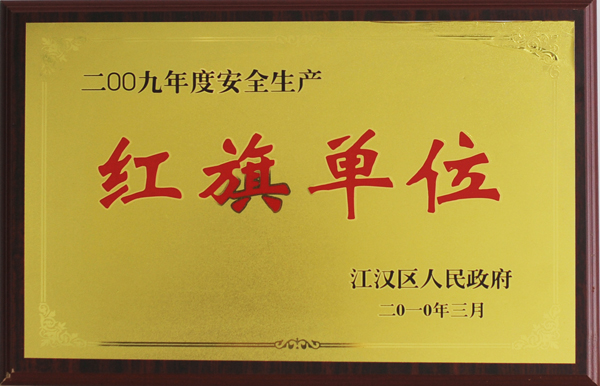 二00九年度安全生产
红旗单位
江汉区人民政府
二0一0年三月